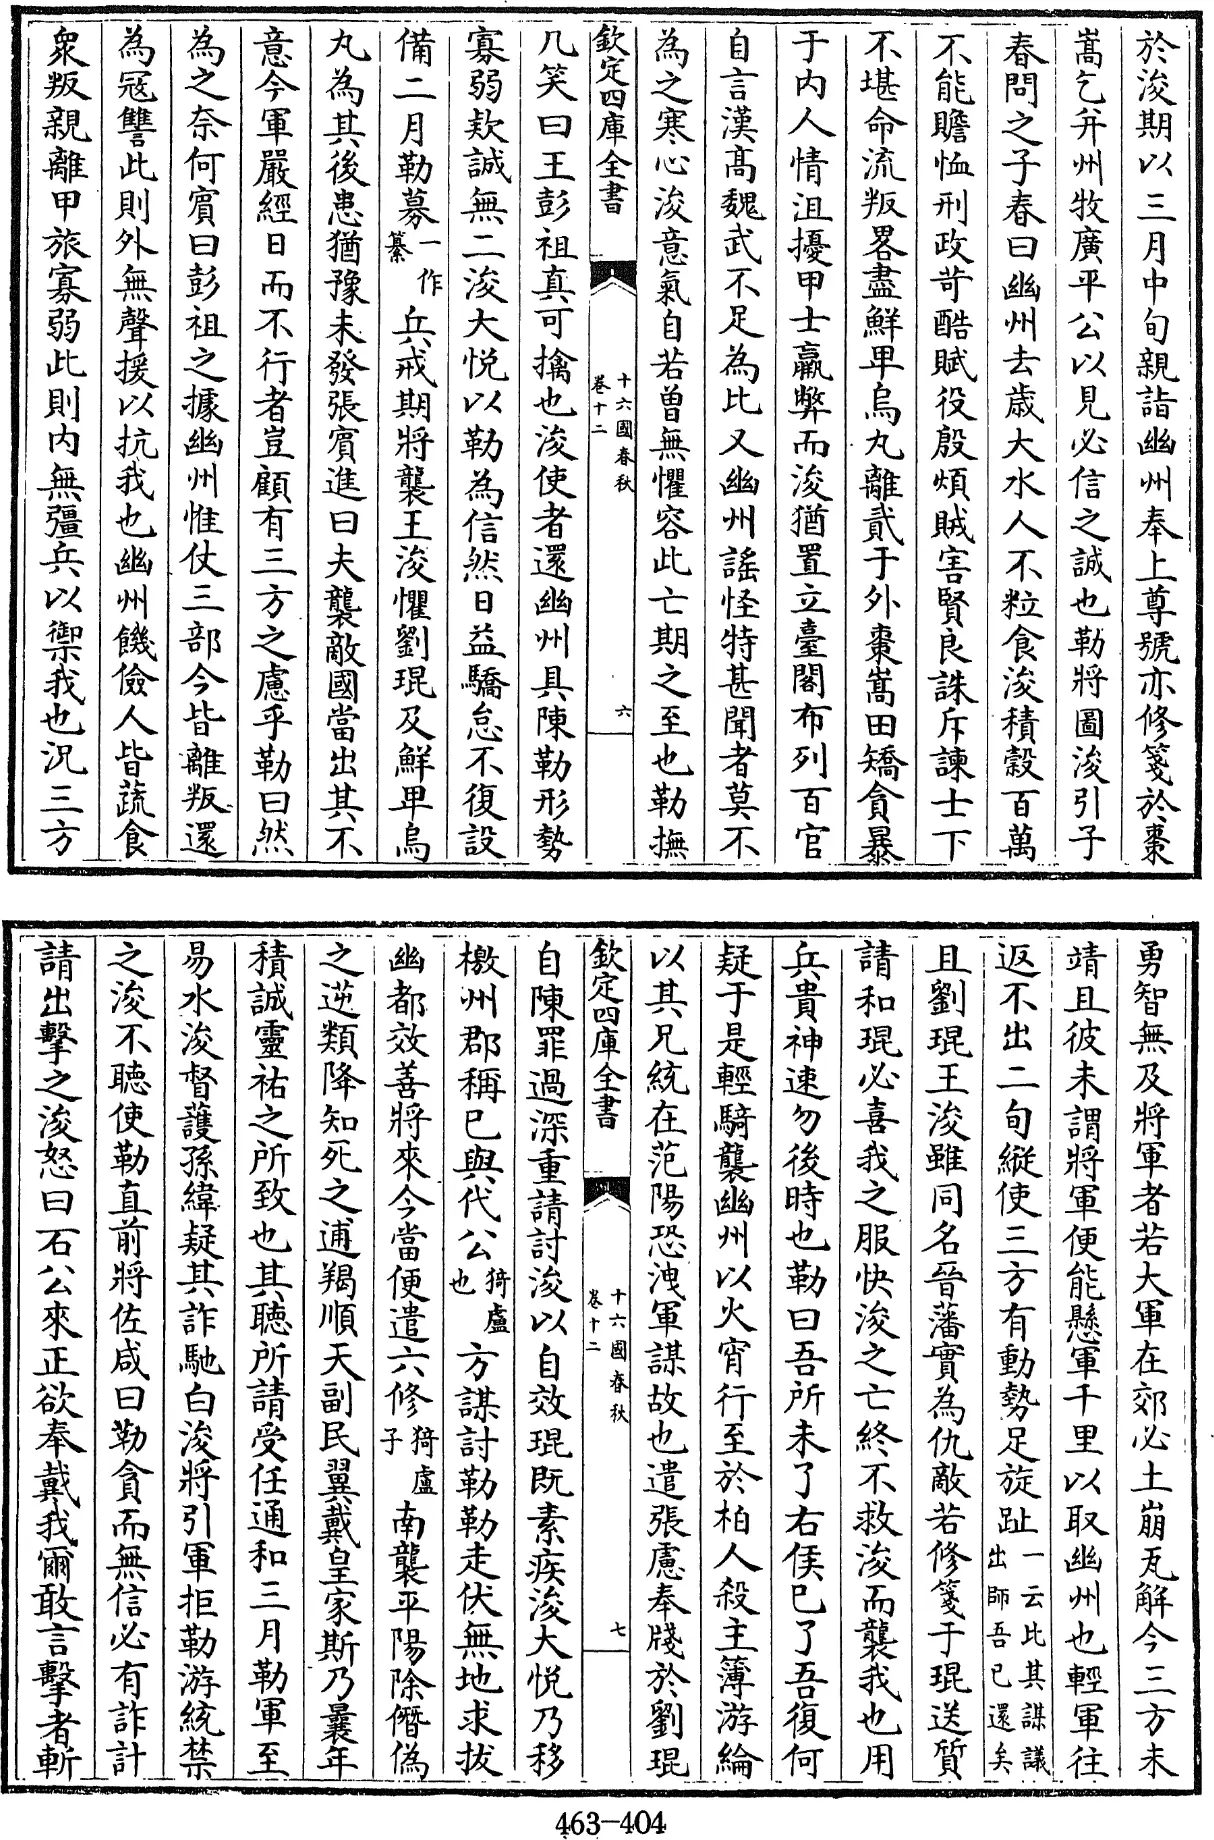 於浚期以三月中旬親詣幽州奉上尊號亦修箋於棗
嵩乞并州牧廣平公以見必信之誠也勒將圖浚引子
春問之子春曰幽州去歲大水人不粒食浚積穀百萬
不能贍恤刑政苛酷賦役殷煩賊害賢良誅斥諫士下
不堪命流叛畧盡鮮卑烏丸離貳于外棗嵩田矯貪暴
于内人情沮擾甲士羸弊而浚猶置立臺閣布列百官
自言漢高魏武不足為比又幽州謡怪特甚聞者莫不
為之寒心浚意氣自若曽無懼容此亡期之至也勒撫
欽定四庫全書 十六國春秋 卷十二 六
几笑曰王彭祖真可擒也浚使者還幽州具陳勒形勢
寡弱欵誠無二浚大悦以勒為信然日益驕怠不復設
備二月勒募一作纂兵戒期將襲王浚懼劉琨及鮮卑烏
丸為其後患猶豫未發張賓進曰夫襲敵國當出其不
意今軍嚴經日而不行者豈顧有三方之慮乎勒曰然
為之奈何賓曰彭祖之據幽州惟仗三部今皆離叛還
為冦讐此則外無聲援以抗我也幽州饑儉人皆蔬食
衆叛親離甲旅寡弱此則内無彊兵以禦我也況三方
勇智無及將軍者若大軍在郊必土崩瓦解今三方未
靖且彼未謂將軍便能懸軍千里以取幽州也輕軍往
返不出二旬縱使三方有動勢足旋趾一云比其謀議出師吾已還矣
且劉琨王浚雖同名晉藩實為仇敵若修箋于琨送質
請和琨必喜我之服快浚之亡終不救浚而襲我也用
兵貴神速勿後時也勒曰吾所未了右侯已了吾復何
疑于是輕騎襲幽州以火宵行至於柏人殺主簿游綸
以其兄統在范陽恐洩軍謀故也遣張慮奉牋於劉琨
欽定四庫全書 十六國春秋 卷十二 七
自陳罪過深重請討浚以自效琨既素疾浚大悦乃移
檄州郡稱已與代公猗盧也方謀討勒勒走伏無地求拔
幽都效善將來今當便遣六修猗盧子南襲平陽除僭偽
之逆類降知死之逋羯順天副民翼戴皇家斯乃曩年
積誠靈祐之所致也其聽所請受任通和三月勒軍至
易水浚督護孫緯疑其詐馳白浚將引軍拒勒游統禁
之浚不聽使勒直前將佐咸曰勒貪而無信必有詐計
請出擊之浚怒曰石公來正欲奉戴我爾敢言擊者斬
463-404